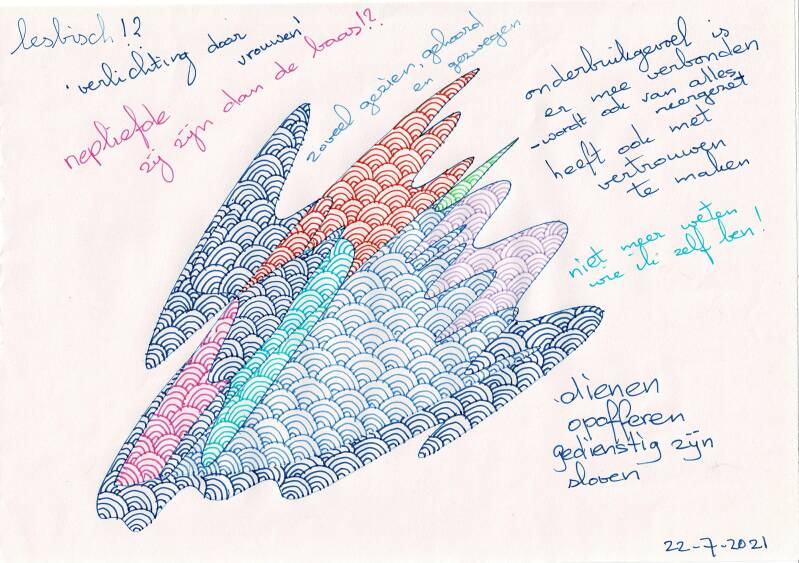 lesbisch!?
'verlichting door
vrouwen'
nepliefde
zij zijn dan de baas!?
zoveel gezien, gehoord
en gezwegen
onderbuikgevoel is
er mee verbonden
- wordt ook van alles
neergezet
heeft ook met
vertrouwen
te maken
niet meer weten
wie ik zelf ben!
dienen
opofferen
gedienstig zijn
sloven
22-7-2021